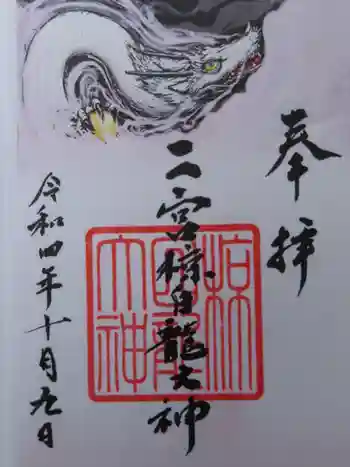 奉拝
二宮椋白龍大神
令和四年十月九日